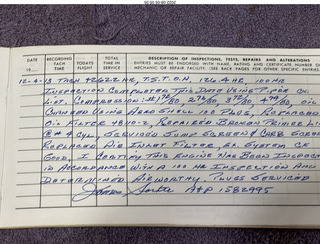 DATE
19......
RECORDING TACH TIME
TODAY'S FLIGHT
TOTAL TIME IN SERVICE
DESCRIPTION OF INSPECTIONS, TESTS, REPAIRS AND ALTERATIONS
ENTRIES MUST BE ENDORSED WITH NAME, RATING AND CERTIFICATE NUMBER OF
MECHANIC OR REPAIR FACILITY. (SEE BACK PAGES FOR OTHER SPECIFIC ENTRIES)
HR, 100 HR
INSPECTION COMPLETED THIS DATE USING
LIST. COMPRESSION /80, /80, /80, /80, OIL
CHANGED USING AERO SHELL 100 PLUS, REPLACED
OIL FILTER, REPAIRED BROKEN PRIMER
@ #4 CYL, SERVICED SUMP SCREEN / CARB SCREEN
REPLACED AIR INLET FILTER, SYSTEM CK
GOOD. I CERTIFY THIS ENGINE HAS BEEN INSPECTED
IN ACCORDANCE WITH A 100 HR INSPECTION AND
DETERMINED AIRWORTHY. PLUGS SERVICED
A+P 1582995